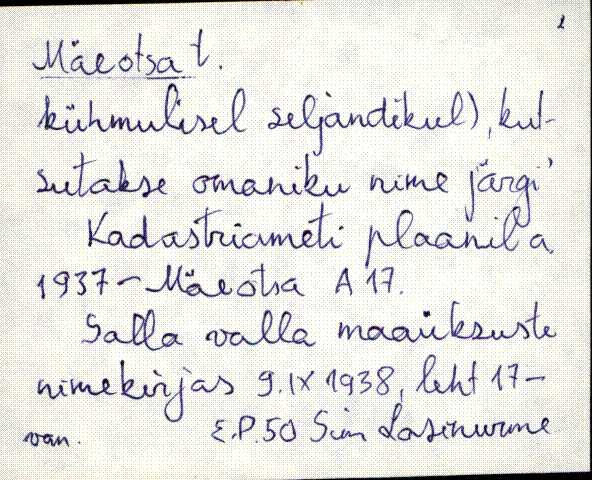 2
Mäeotsa t.
kühmulisel seljandikul), kut-
sutakse omaniku nime järgi'
Kadastriameti plaanil a
1937 - Mäeotsa A 17.
Salla valla maaüksuste
nimekirjas 9.IX 1938, leht 17 -
van. E.P.50 Sim Lasinurme